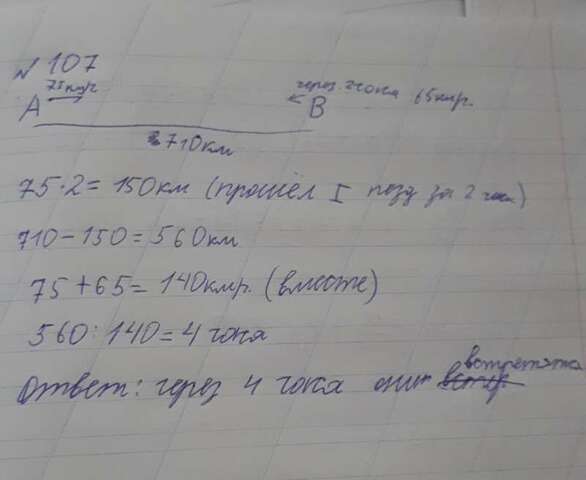 N 107
75 км/ч через 2 часа 65 км/ч.
A B
710 км
75·2 = 150 км (прошёл I позд за 2 часа)
710 - 150 = 560 км
75 + 65 = 140 км/ч. (вместе)
560 : 140 = 4 часа
встретятся
Ответ: через 4 часа они